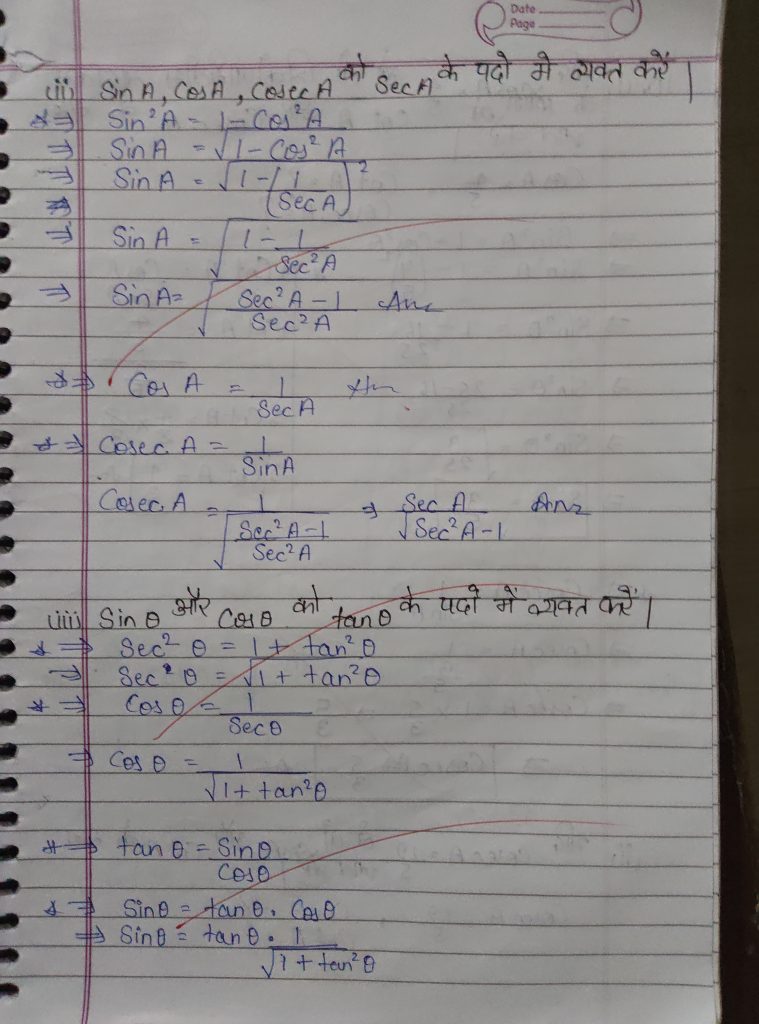 Date
Page
(ii) Sin A, Cos A, Cosec A को Sec A के पदो मे व्यक्त करें।
*⇒ Sin²A = 1 - Cos²A
⇒ Sin A = √(1 - Cos²A)
⇒ Sin A = √(1 - (1/Sec A)²)
⇒ Sin A = √(1 - 1/Sec²A)
⇒ Sin A = √((Sec²A - 1)/Sec²A) Ans
*⇒ Cos A = 1/Sec A Ans
*⇒ Cosec A = 1/Sin A
Cosec A = 1/√((Sec²A - 1)/Sec²A) ⇒ Sec A/√(Sec²A - 1) Ans
(iii) Sin θ और Cos θ को tan θ के पदो में व्यक्त करें।
*⇒ Sec² θ = 1 + tan² θ
⇒ Sec² θ = √(1 + tan² θ)
*⇒ Cos θ = 1/Sec θ
⇒ Cos θ = 1/√(1 + tan²θ)
*⇒ tan θ = Sin θ/Cos θ
*⇒ Sin θ = tan θ . Cos θ
⇒ Sin θ = tan θ . 1/√(1 + tan² θ)